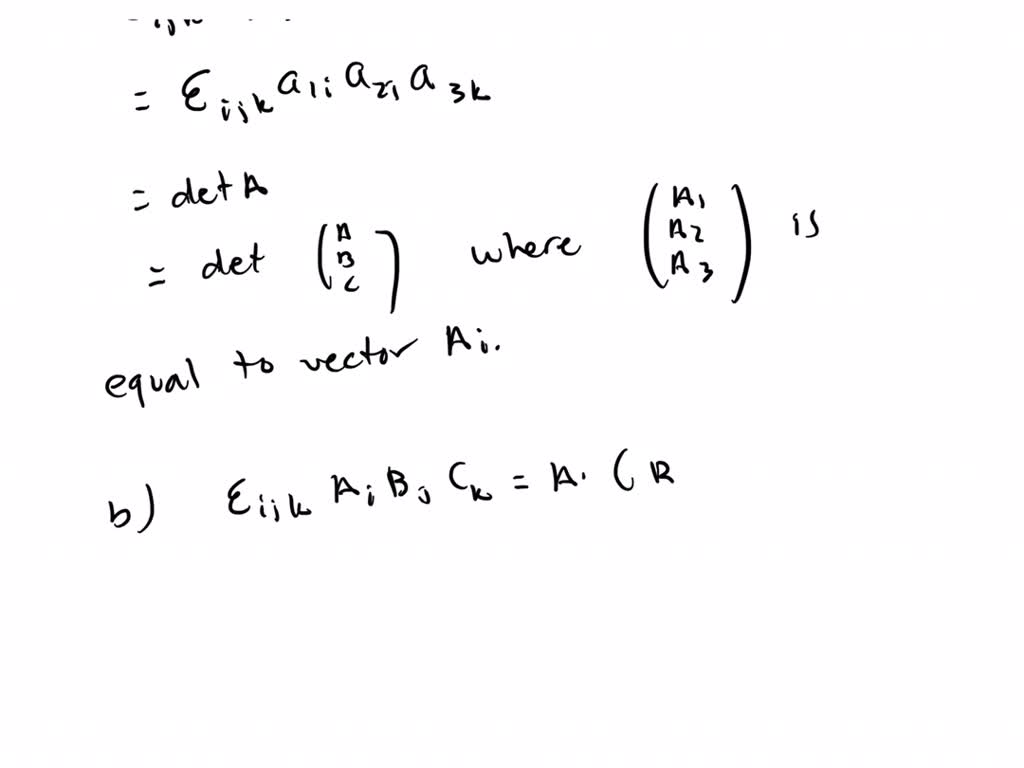 = ε_{ijk} a_{1i} a_{2j} a_{3k}
= det A
= det (A B C) where (A1 A2 A3) is
equal to vector Ai.
b) ε_{ijk} A_i B_j C_k = A · ( B